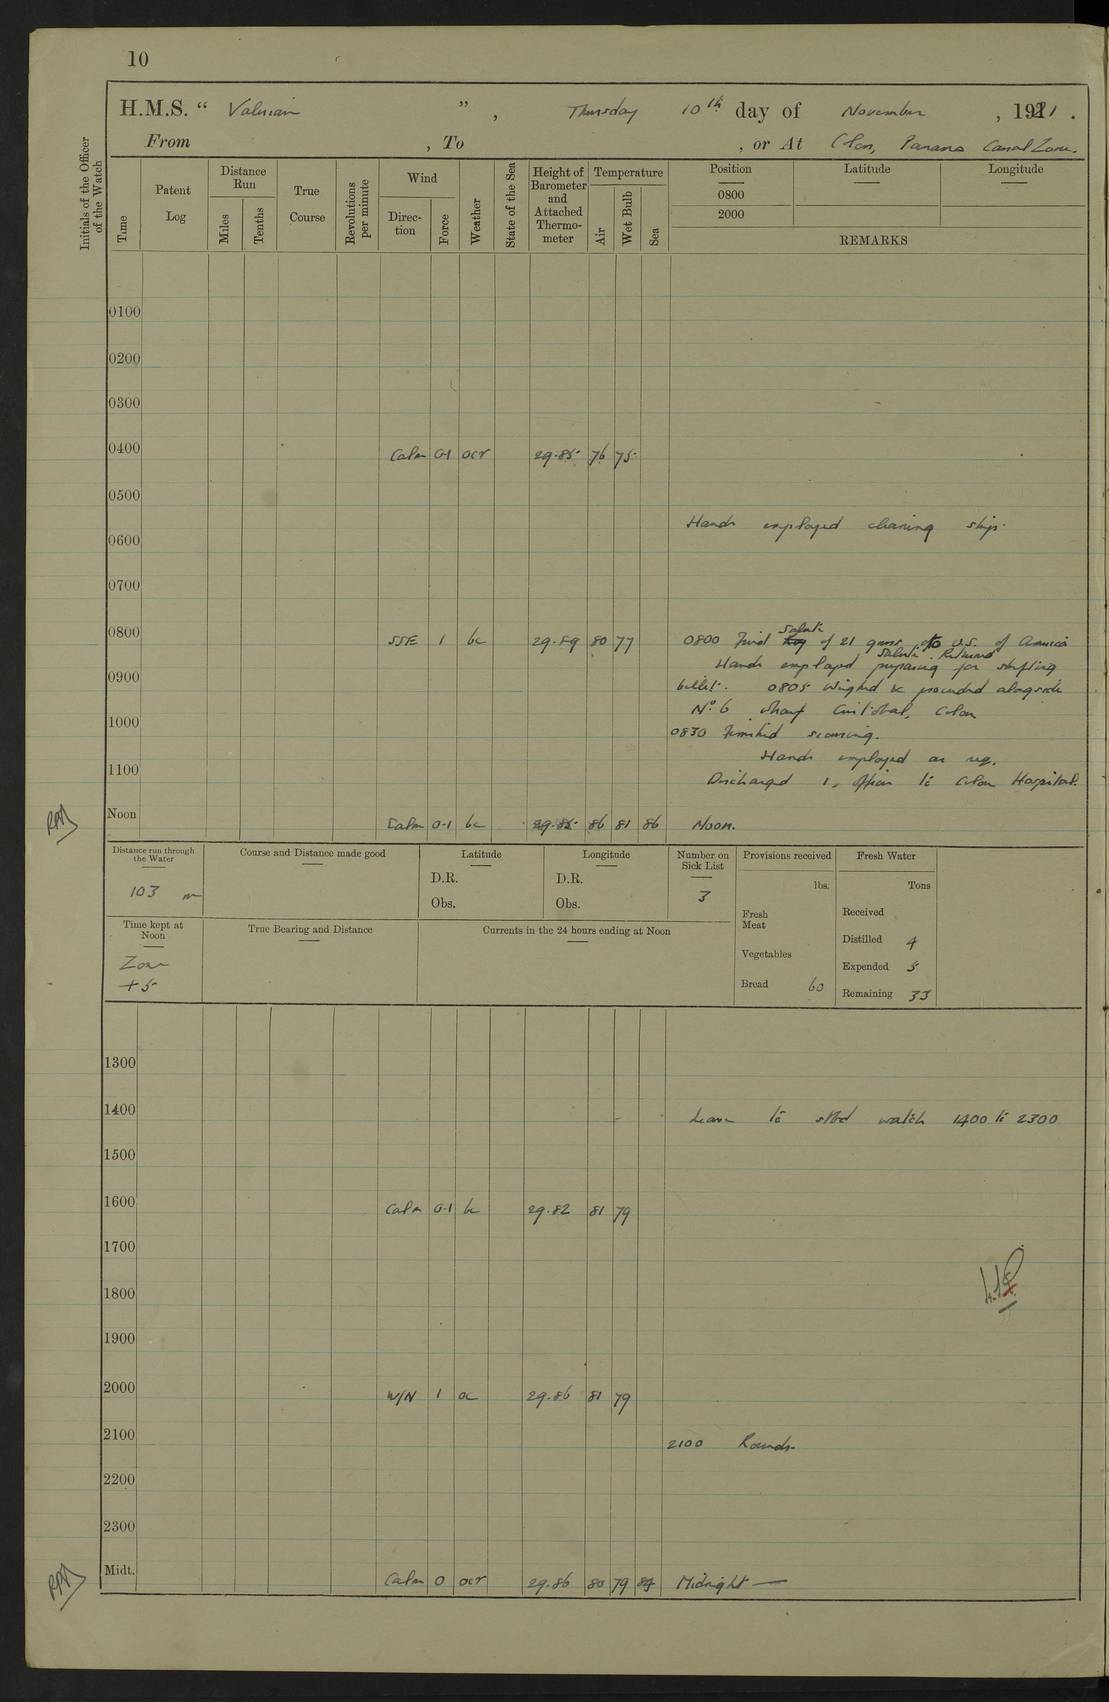 10
H.M.S. “ Valerian ” , Thursday 10th day of November , 1921 .
From , To , or At Colon, Panama Canal Zone.
Initials of the Officer of the Watch
Time
Patent Log
Distance Run
Miles
Tenths
True Course
Revolutions per minute
Wind
Direc-tion
Force
Weather
State of the Sea
Height of Barometer and Attached Thermo-meter
Temperature
Air
Wet Bulb
Sea
Position
Latitude
Longitude
0800
2000
REMARKS
0100
0200
0300
0400 Calm 0-1 ocr 29.85 76 75
0500
Hands employed cleaning ship.
0600
0700
0800 SSE 1 bc 29.89 80 77
0800 Fired salute of 21 guns to U.S. of America
salute Returned
Hands employed preparing for shifting
0900
billet. 0805 Weighed & proceeded alongside
No. 6 wharf Cristobal, Colon
1000
0830 Finished securing.
Hands employed as req.
1100
Discharged 1, Officer to Colon Hospital.
RAA
Noon Calm 0-1 bc 29.85 86 81 86 Noon.
Distance run through the Water
103 m
Course and Distance made good
Latitude
D.R.
Obs.
Longitude
D.R.
Obs.
Number on Sick List
3
Provisions received
lbs.
Fresh Meat
Vegetables
Bread 60
Fresh Water
Tons
Received
Distilled 4
Expended 5
Remaining 33
Time kept at Noon
Zone
+5
True Bearing and Distance
Currents in the 24 hours ending at Noon
1300
1400 Leave to stbd watch 1400 to 2300
1500
1600 Calm 0-1 bc 29.82 81 79
1700
1800
1900
2000 W/N 1 oc 29.86 81 79
2100
2100 Rounds
2200
2300
Midt. Calm 0 ocr 29.86 80 79 84 Midnight —
RAA